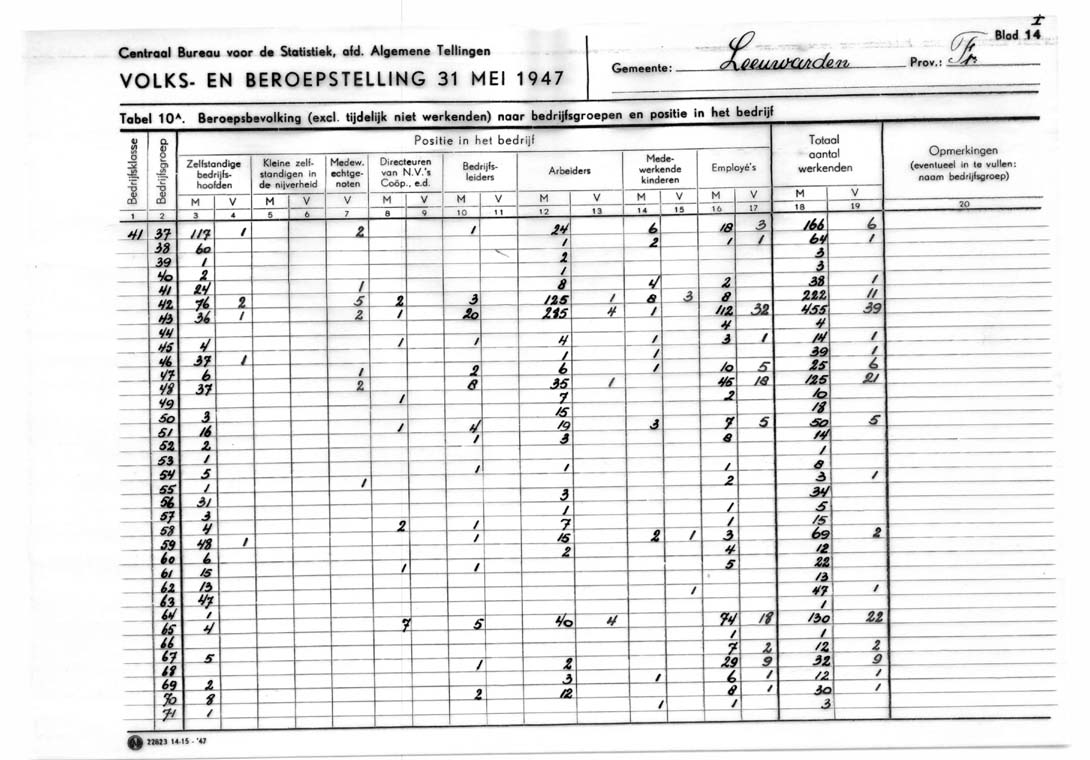 I
Blad 14
Centraal Bureau voor de Statistiek, afd. Algemene Tellingen
VOLKS- EN BEROEPSTELLING 31 MEI 1947
Gemeente: Leeuwarden Prov.: Fr.
Tabel 10A. Beroepsbevolking (excl. tijdelijk niet werkenden) naar bedrijfsgroepen en positie in het bedrijf
Bedrijfsklasse
Bedrijfsgroep
Positie in het bedrijf
Zelfstandige bedrijfs-hoofden
Kleine zelf-standigen in de nijverheid
Medew. echtge-noten
Directeuren van N.V.'s Coöp., e.d.
Bedrijfs-leiders
Arbeiders
Mede-werkende kinderen
Employé's
Totaal aantal werkenden
Opmerkingen (eventueel in te vullen: naam bedrijfsgroep)
M V M V V M V M V M V M V M V M V
1 2 3 4 5 6 7 8 9 10 11 12 13 14 15 16 17 18 19 20
41 37 117 1 2 1 24 6 18 3 166 6
38 60 1 2 1 1 64 1
39 1 2 3
40 2 1 3
41 24 1 8 4 2 38 1
42 76 2 5 2 3 125 1 8 3 8 222 11
43 36 1 2 1 20 285 4 1 112 32 455 39
44 4 4
45 4 1 1 4 1 3 1 14 1
46 37 1 1 1 39 1
47 6 1 2 6 1 10 5 25 6
48 37 2 8 35 1 45 18 125 21
49 1 7 2 10
50 3 15 18
51 16 1 4 19 3 7 5 50 5
52 2 1 3 8 14
53 1 1
54 5 1 1 1 8
55 1 1 2 3 1
56 31 3 34
57 3 1 1 5
58 4 2 1 7 1 15
59 48 1 1 15 2 1 3 69 2
60 6 2 4 12
61 15 1 1 5 22
62 13 13
63 47 1 47 1
64 1 1
65 4 7 5 40 4 74 18 130 22
66 1 1
67 5 7 2 12 2
68 1 2 29 9 32 9
69 2 3 1 6 1 12 1
70 8 2 12 8 1 30 1
71 1 1 1 3
N 22823 14-15 - '47